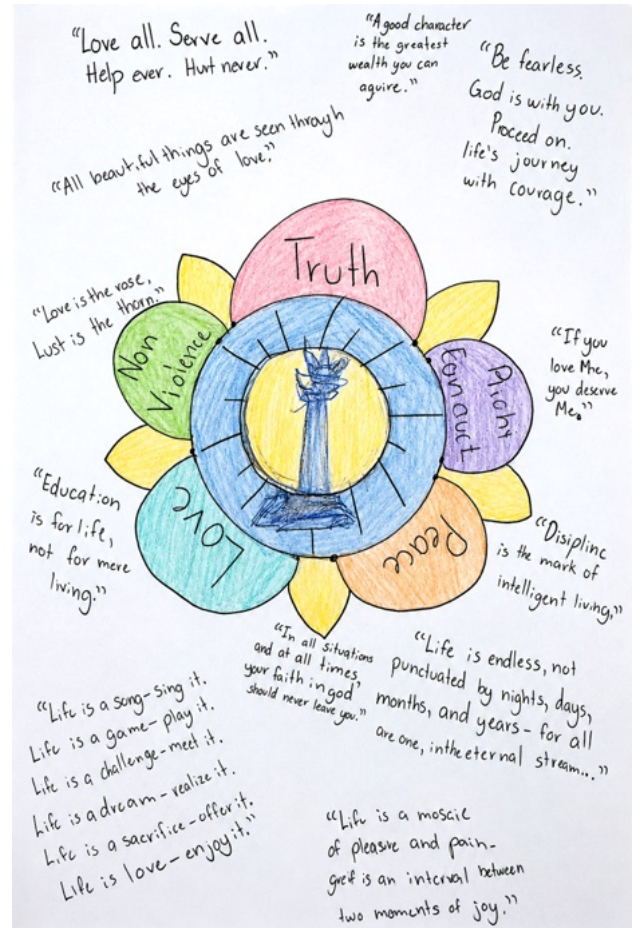 "Love all. Serve all.
Help ever. Hurt never."
"A good character
is the greatest
wealth you can
aguire."
"Be fearless.
God is with you.
Proceed on.
life's journey
with courage."
"All beautiful things are seen through
the eyes of love."
Truth
"Love is the rose,
Lust is the thorn."
Non
Violence
Right
Conduct
"If you
love Me,
you deserve
Me."
Love
Peace
"Education
is for life,
not for mere
living."
"Discipline
is the mark of
intelligent living."
"In all situations
and at all times,
your faith in god
should never leave you."
"Life is endless, not
punctuated by nights, days,
months, and years- for all
are one, in the eternal stream..."
"Life is a song-sing it.
Life is a game-play it.
Life is a challenge-meet it.
Life is a dream-realize it.
Life is a sacrifice-offer it.
Life is love-enjoy it."
"Life is a mosaic
of pleasure and pain-
greif is an interval between
two moments of joy."